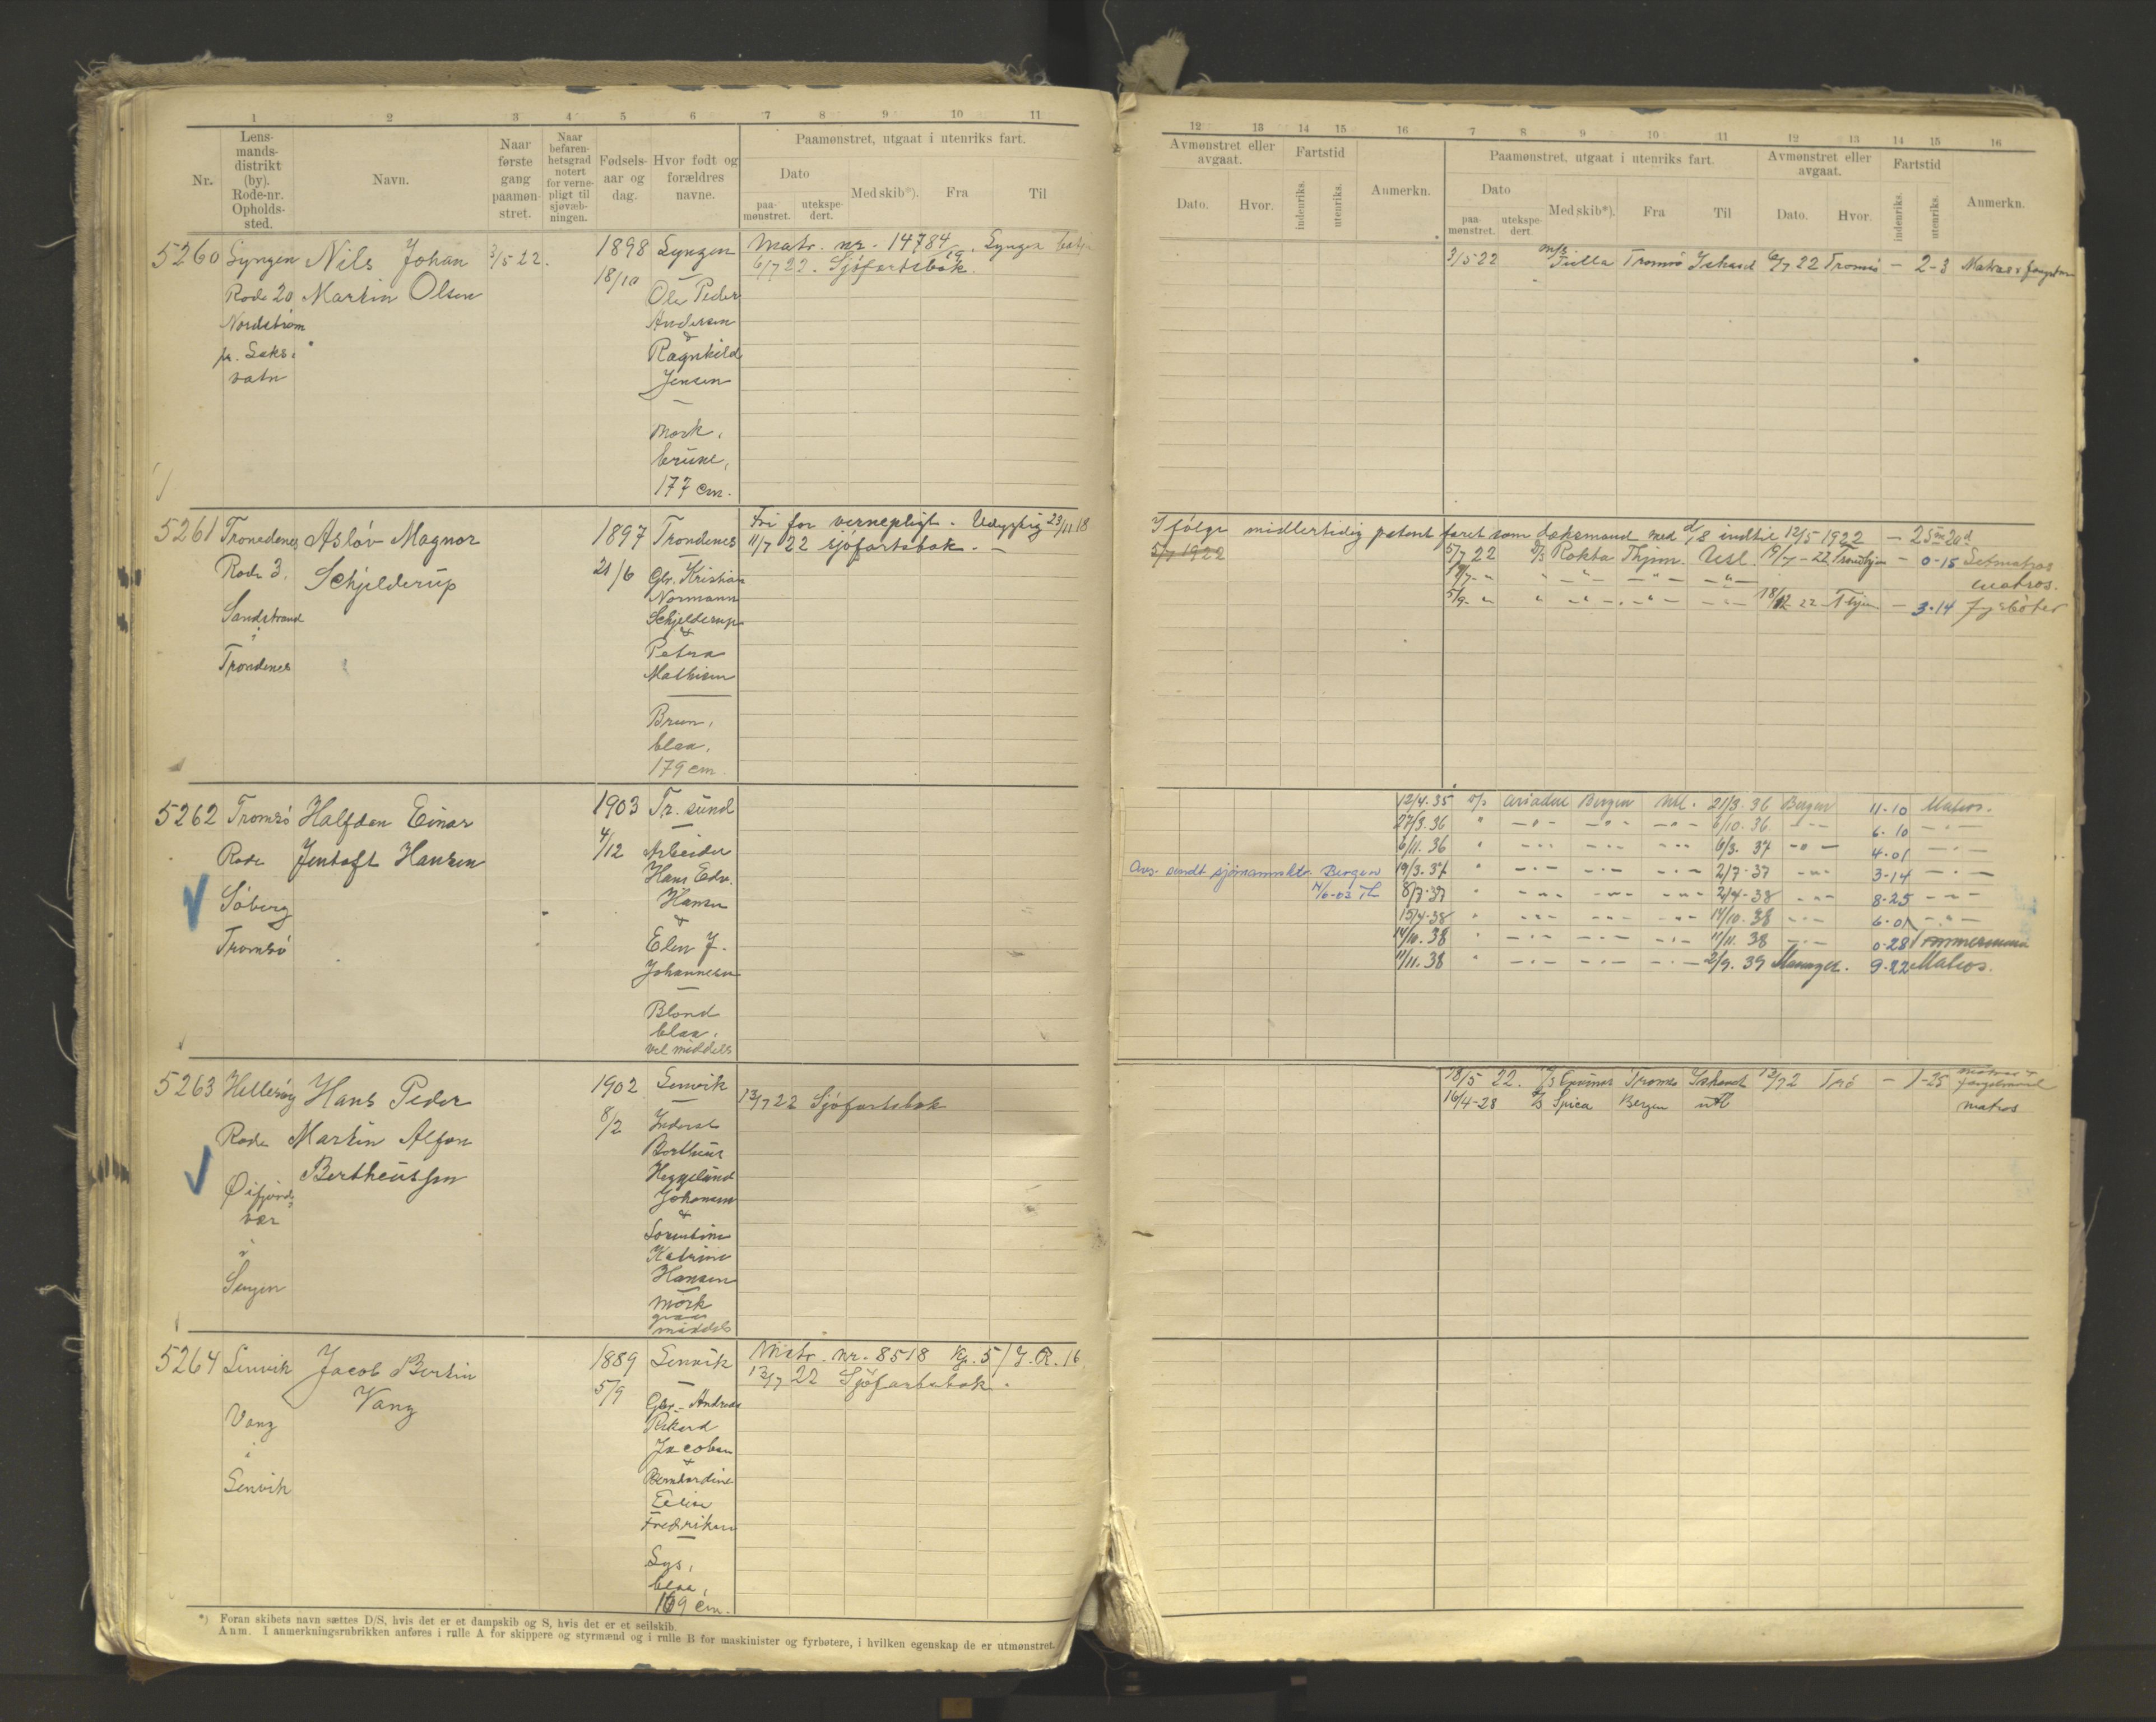 1 2 3 4 5 6 7 8 9 10 11
Nr.
Lens-
mands-
distrikt
(by).
Rode-nr.
Opholds-
sted.
Navn.
Naar
første
gang
paamøn-
stret.
Naar
befaren-
hetsgrad
notert
for verne-
pligt til
sjøvæb-
ningen.
Fødsels-
aar og
dag.
Hvor født og
forældres
navne.
Paamønstret, utgaat i utenriks fart.
Dato
paa-
mønstret.
utekspe-
dert.
Med skib*).
Fra
Til
5260 Lyngen Nils Johan 3/5 22. 1898 Lyngen Matr. nr. 14784 Lyngen
6/7 22. Sjöfartsbok.
Rode 20 Martin Olsen 18/10 Ole Peder
Nordstrøm Andersen
&
Ragnhild
vatn Jensen
Mork,
brune,
177 cm.
5261 Trondenes Asløv Magnor 1897 Trondenes Fri for vernepligt. Udygtig 23/11 18
11/7 22 sjöfartsbok. –
Rode 3. Schjelderup 21/6 Gbr. Kristian
Normann
Sandstrand Schjelderup
i &
Trondenes Petra
Mathisen
Brun,
blaa,
179 cm
5262 Tromsö Halfdan Einar 1903 Tr. sund
Rode Jentoft Hansen 4/12 Arbeider
Hans Edv.
Söberg Hansen
&
Tromsö Elen J.
Johannesen
Blond
blaa,
vel middels
5263 Hillesöy Hans Peder 1902 Lenvik 13/7 22 Sjöfartsbok
Rode Martin Alfon 8/2 Inderst
Bertheussen Bertheus
Heggelund
Øifjord Johansen
vær &
i Sorentine
Senjen Katrine
Hansen
mörk
graa
middels
5264 Lenvik Jacob Bertin 1889 Lenvik Matr. nr. 8518 Kp. 5 / J. R. 16
Vang 5/9 13/7 22 Sjöfartsbok.
Vang Gbr. Andreas
i Rikard
Lenvik Jacobsen
&
Bernhardine
Elise
Fredriksen
Lys,
blaa,
169 cm.
*) Foran skibets navn sættes D/S, hvis det er et dampskib og S, hvis det er et seilskib.
Anm. I anmerkningsrubrikken anføres i rulle A for skippere og styrmænd og i rulle B for maskinister og fyrbøtere, i hvilken egenskap de er utmønstret.
12 13 14 15 16 7 8 9 10 11 12 13 14 15 16
Avmønstret eller
avgaat.
Dato.
Hvor.
Fartstid
indenriks.
utenriks.
Anmerkn.
Paamønstret, utgaat i utenriks fart.
Dato
paa-
mønstret.
utekspe-
dert.
Med skib*).
Fra
Til
Avmønstret eller
avgaat.
Dato.
Hvor.
Fartstid
indenriks.
utenriks.
Anmerkn.
3/5 22 M/S Tromsö Ishavet 6/7 22 Tromsö – 2-3
I følge midlertidig patent faret som dæksmand med indtil 12/5 1922 – 25m 20d
5/7 1922
5/7 22 D/S Rokta Thjem. Utl. 19/7-22 Trondhjem – 0-15 Letmatros
matros.
5/9 - 18/12 22 Thjem – 3-14 fyrböter
12/4.35 D/S Ariadne Bergen Utl. 21/3. 36 Bergen 11-10 Matros.
27/3.36 " – " – – " – – " – 6/10. 36 – " – 6.10 – " –
6/11. 36 " – " – – " – – " – 6/3. 37 – " – 4.01 – " –
Avs. sendt sjömannsktr. Bergen 19/3.37 " – " – – " – – " – 2/7.37 – " – 3-14 – " –
8/7.37 " – " – – " – – " – 2/4.38 – " – 8-25 – " –
15/4.38 " – " – – " – – " – 14/10. 38 – " – 6.01 – " –
14/10. 38 " – " – – " – – " – 11/11. 38 – " – 0.28 Tömmermann
11/11. 38 " – " – – " – – " – 2/9. 39 9.22 Matros.
18/5 22. Tromsö Ishavet 13/7 22 Trö – 1-25
16/4-28 D/S Spica Bergen utl matros